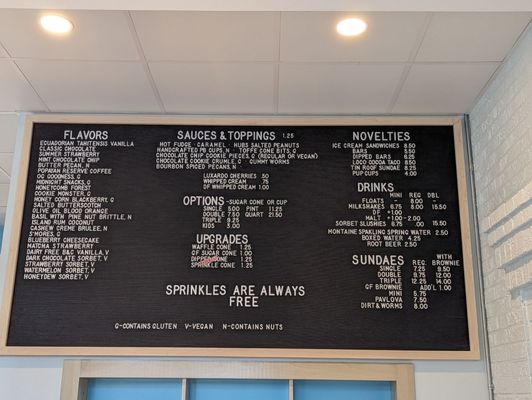 FLAVORS
ECUADORIAN SANTENTIA VANILLA
CLASSIC CHOCOLATE
SUMMER STRAWBERRY
MINT CHOCOLATE CHIP
BUTTER PECAN, N
POPAYAN RESERVE COFFEE
OG GOODNESS, G
MIDNIGHT SNACKS, G
HONEYCOMB FOREST
COOKIE MONSTER, G
HONEY CORN BLACKBERRY, G
SALTED BUTTERSCOTCH
OLIVE OIL BLOOD ORANGE
BASIL WITH PINE NUT BRITTLE, N
ISLAND RUM COCONUT
CASHEW CREME BRULEE, N
S'MORES, G
BLUEBERRY CHEESECAKE
MATCHA STRAWBERRY, V
DAIRY FREE B&C VANILLA, V
DARK CHOCOLATE SORBET, V
STRAWBERRY SORBET, V
WATERMELON SORBET, V
HONEYDEW SORBET, V
SAUCES & TOPPINGS 1.25
HOT FUDGE - CARAMEL - HUBS SALTED PEANUTS
HANDCRAFTED PB CUPS, N - TOFFE CONE BITS, G
CHOCOLATE CHIP COOKIE PIECES, G (REGULAR OR VEGAN)
CHOCOLATE COOKIE CRUMBLE, G - GUMMY WORMS
BOURBON SPICED PECANS, N
LUXARDO CHERRIES .50
WHIPPED CREAM .75
DF WHIPPED CREAM 1.00
OPTIONS -SUGAR CONE OR CUP
SINGLE 5.00 PINT 11.25
DOUBLE 7.50 QUART 21.50
TRIPLE 9.25
KIDS 3.00
UPGRADES
WAFFLE CONE 1.25
GF SUGAR CONE 1.00
DIPPED CONE 1.25
SPRINKLE CONE 1.25
SPRINKLES ARE ALWAYS
FREE
G-CONTAINS GLUTEN V-VEGAN N-CONTAINS NUTS
NOVELTIES
ICE CREAM SANDWICHES 8.50
BARS 5.50
DIPPED BARS 6.25
LOCO COCOA TACO 8.50
TIN ROOF SUNDAE 8.25
PUP CUPS 4.00
DRINKS
MINI REG DBL
FLOATS - 8.00
MILKSHAKES 6.75 8.00 15.50
DF +1.00
MALT +1.00 +2.00
SORBET SLUSHES 6.75 8.00 15.50
MONTAINE SPARKLING SPRING WATER 2.50
BOXED WATER 4.25
ROOT BEER 2.50
SUNDAES WITH
REG. BROWNIE
SINGLE 7.25 9.50
DOUBLE 9.75 12.00
TRIPLE 12.25 14.00
GF BROWNIE ADD'L 1.00
MINI 5.75
PAVLOVA 7.50
DIRT&WORMS 8.00